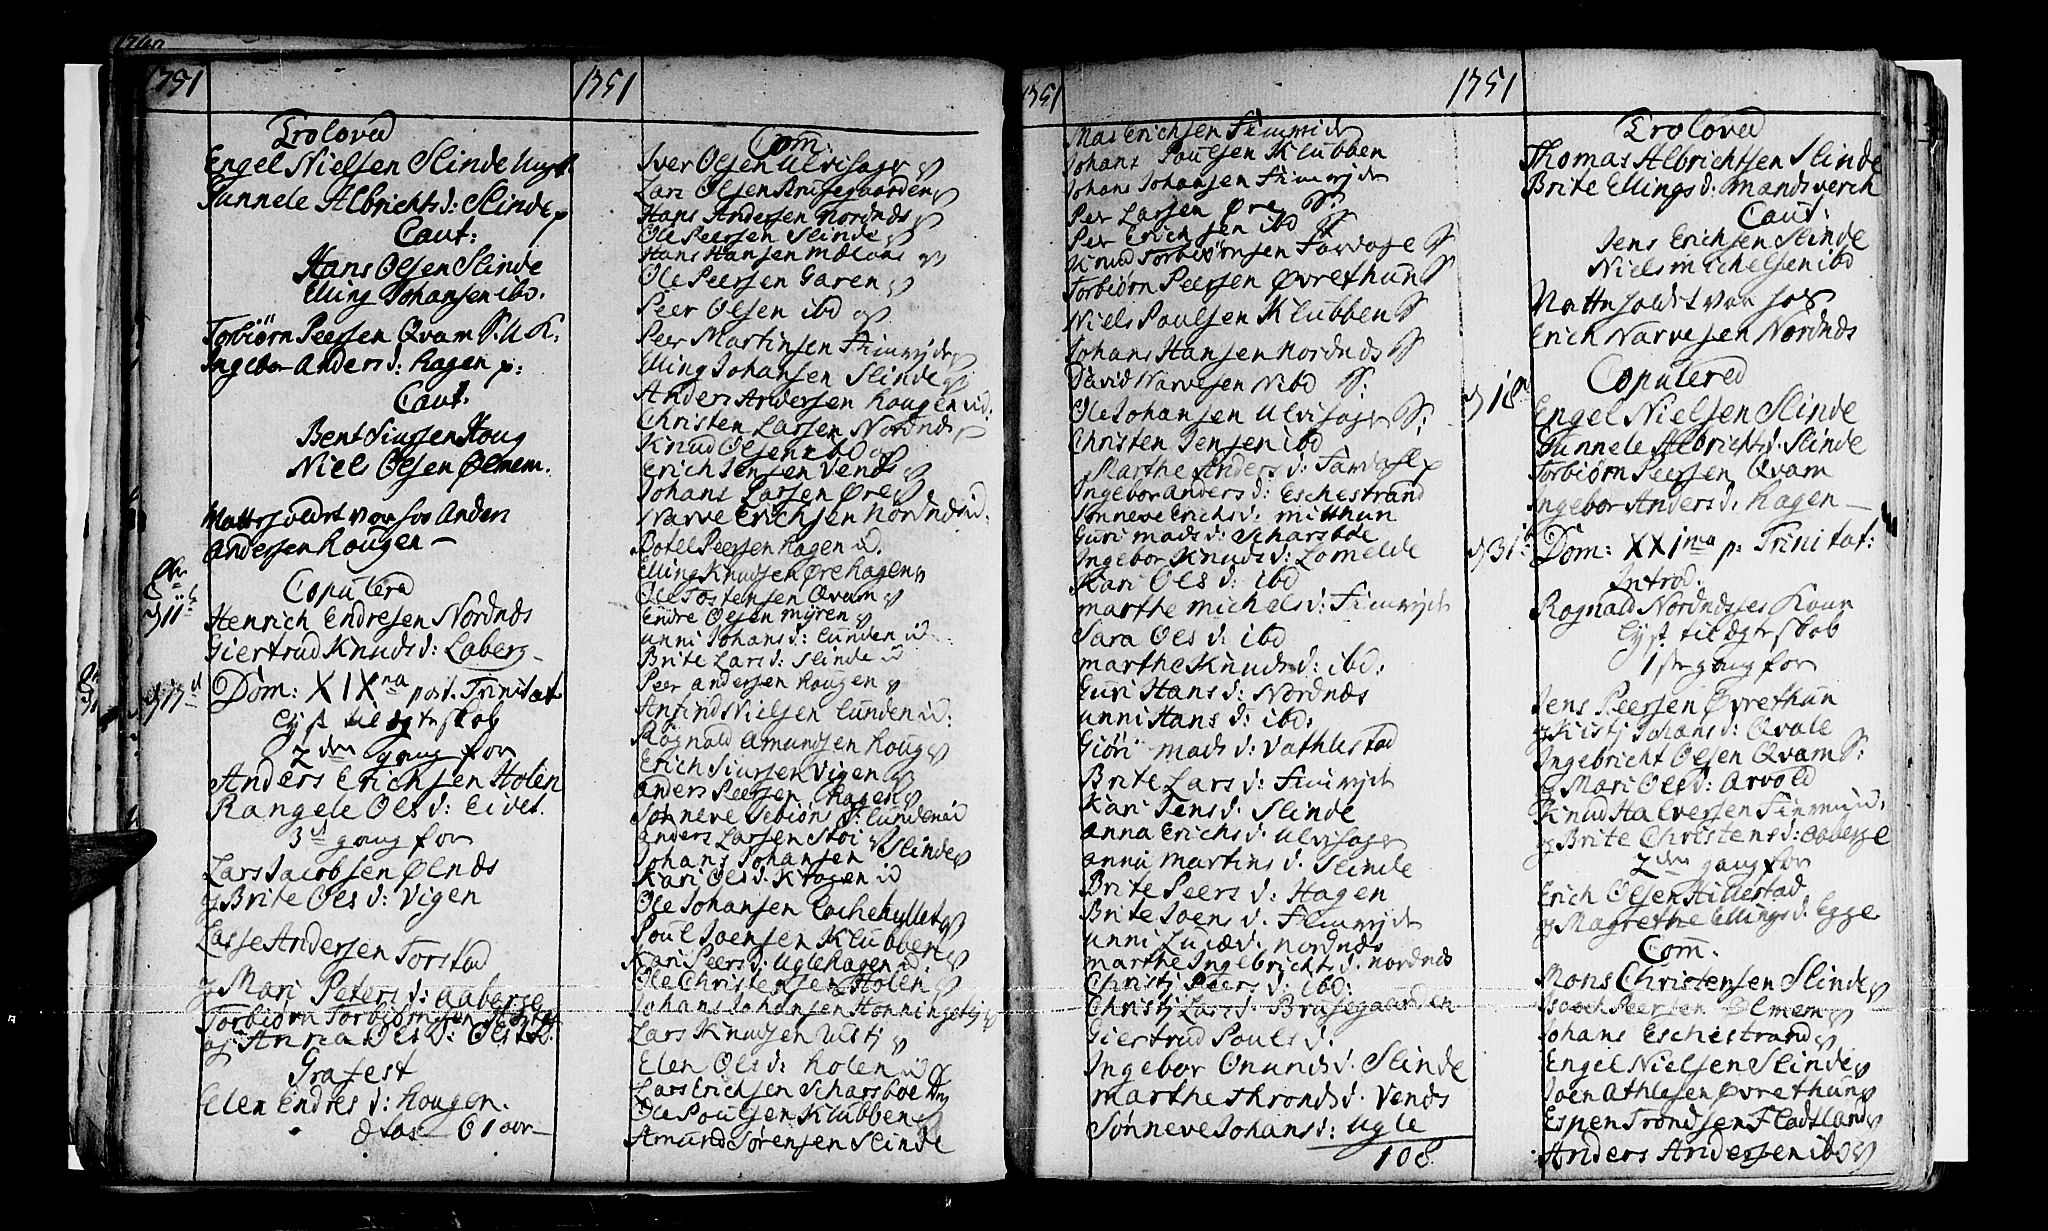 1751
Trolovet
Engel Nielsen Slinde
Gunnele Albrichtsd: Slinde p
Caut:
Hans Olsen Slinde
Elling Johansen ibd.
Torbiörn Peersen Qvam S. U. K:
Ingebor Andersd: Hagen p:
Caut.
Bent Siursen Houg
Niels Olsen Ølmem.
Anders
Andersen Hougen
Copulered
d 11
Henrich Endresen Nordnæs
Giertrud Knudsd: Laberg
d 17
Dom: XIXna post. Trinitat
Lyst til ægteskab
2den gang for
Anders Erichsen Holen
Rangele Olsd: Eidet.
3d gang for
Lars Jacobsen Ølnæs
og Brite Olsd: Vigen
Lasse Andersen Torstad
og Mari Petersd: Aaberge
Torbiörn Torbiörnsen
og Anna Olsd:
Grafest
Elen Endresd: Hougen.
61 aar
1751
Com:
Iver Olsen Ulvisager
Lars Olsen Brusegaarden
Hans Andersen Nordnæs
Ole Peersen Slinde
Hans Hansen
Ole Peersen Garen
Peer Olsen ibd
Peer Martinsen Fimrejte
Elling Johansen Slinde
Anders Andersen Hougen id:
Christen Larsen Nordnæs
Knud Olsen ibd
Erich Jensen Vends
Johans Larsen Øre
Narve Erichsen Nordnæs id.
Botel Peersen Hagen id.
Elling Knudsen Ørehagen
Ole Tostensen Qvam
Endre Olsen Myren
Unni Johansd: Lunden id
Brite Larsd: Slinde id
Peer Andersen Hougen
Anfind Nielsen Lunden id:
Rognald Amundsen Houg
Erich Siursen Vigen
Anders Peersen Hagen
Sønneve Sebiönsd: Lunden id
Anders Larsen Stoi
Johans Johansen Slinde
Kari Olsd. Krogen id
Ole Johansen Lochehyllet
Poul Joensen Klubben
Kari Peersd: Uglehagen id.
Ole Christensen Holen
Johans Johansen Honningetij
Lars Knudsen
Elen Olsd: Holen id
Lars Erichsen Scharsboe
Ole Poulsen Klubben
Amund Sörensen Slinde
1751
Mas Erichsen Fimrejte
Johans Poulsen Klubben
Johans Johansen Fimrejte
Per Larsen Øre S:
Per Erichsen ibd S
Knud Torbiörnsen Fardahl S
Torbiörn Peersen Øvrethun S
Niels Poulsen Klubben S
Johans Hansen Nordnæs S
David Narvesen ibd S:
Ole Johansen Ulvisager S:
Christen Jensen ibd
Marthe Andersd: Fardahl p
Ingebor Andersd: Eschestrand
Sønneve Erichsd: Mitthun
Guri Madsd: Scharsboe
Ingebor Knudsd: Lomelde
Kari Olsd: ibd
Marthe Michelsd: Fimrejte
Sara Olsd: ibd
Marthe Knudsd: ibd:
Guri Hansd: Nordnæs
Unni Hansd: ibd:
Giöri Madsd: Vathlestad
Brite Larsd: Fimrejte
Kari Jensd: Slinde
Anna Erichsd: Ulvisager
Anni Martinsd: Slinde
Brite Peersd: Hagen
Brite Joensd. Fimrejte
Unni Nordnæs
Marthe Ingebrichtsd: Nordnæs
Christj Peersd: ibd:
Christj Larsd: Brusegaarden
Giertrud Poulsd:
Ingebor Onundsd. Slinde
Marthe Throndsd. Vends
Sønneve Johansd: Ugle
108
1751
Trolovet
Thomas Albrichtsen Slinde
Brite Ellingsd: Mandsverch
Caut:
Jens Erichsen Slinde
Niels Michelsen ibd
Erich Narvesen Nordnæs
Copulered
d 18
Engel Nielsen Slinde
Gunnele Albrichtsd: Slinde
Torbiörn Peersen Qvam
Ingebor Andersd: Hagen
d 31
Dom: XXIma p: Trinitat:
Introd.
Rognald Nordnæsses Kone
Lyst til ægteskab
1ste gang for
Jens Peersen Øvrethun
og Kistj Johansd: Qvale
Ingebricht Olsen Qvam S:
og Mari Olsd: Arvold
Knud Halversen
og Brite Christensd: Aaberge
2den gang for
Erich Olsen Hillestad
og Magrethe Ellingsd: Egge
Com.
Mons Christensen Slinde
Isaach Peersen Ølmem
Johans Eschestrand
Engel Nielsen Slinde
Joen Athlesen Øvrethun
Espen Trondsen Fladtland
Anders Andersen ibd